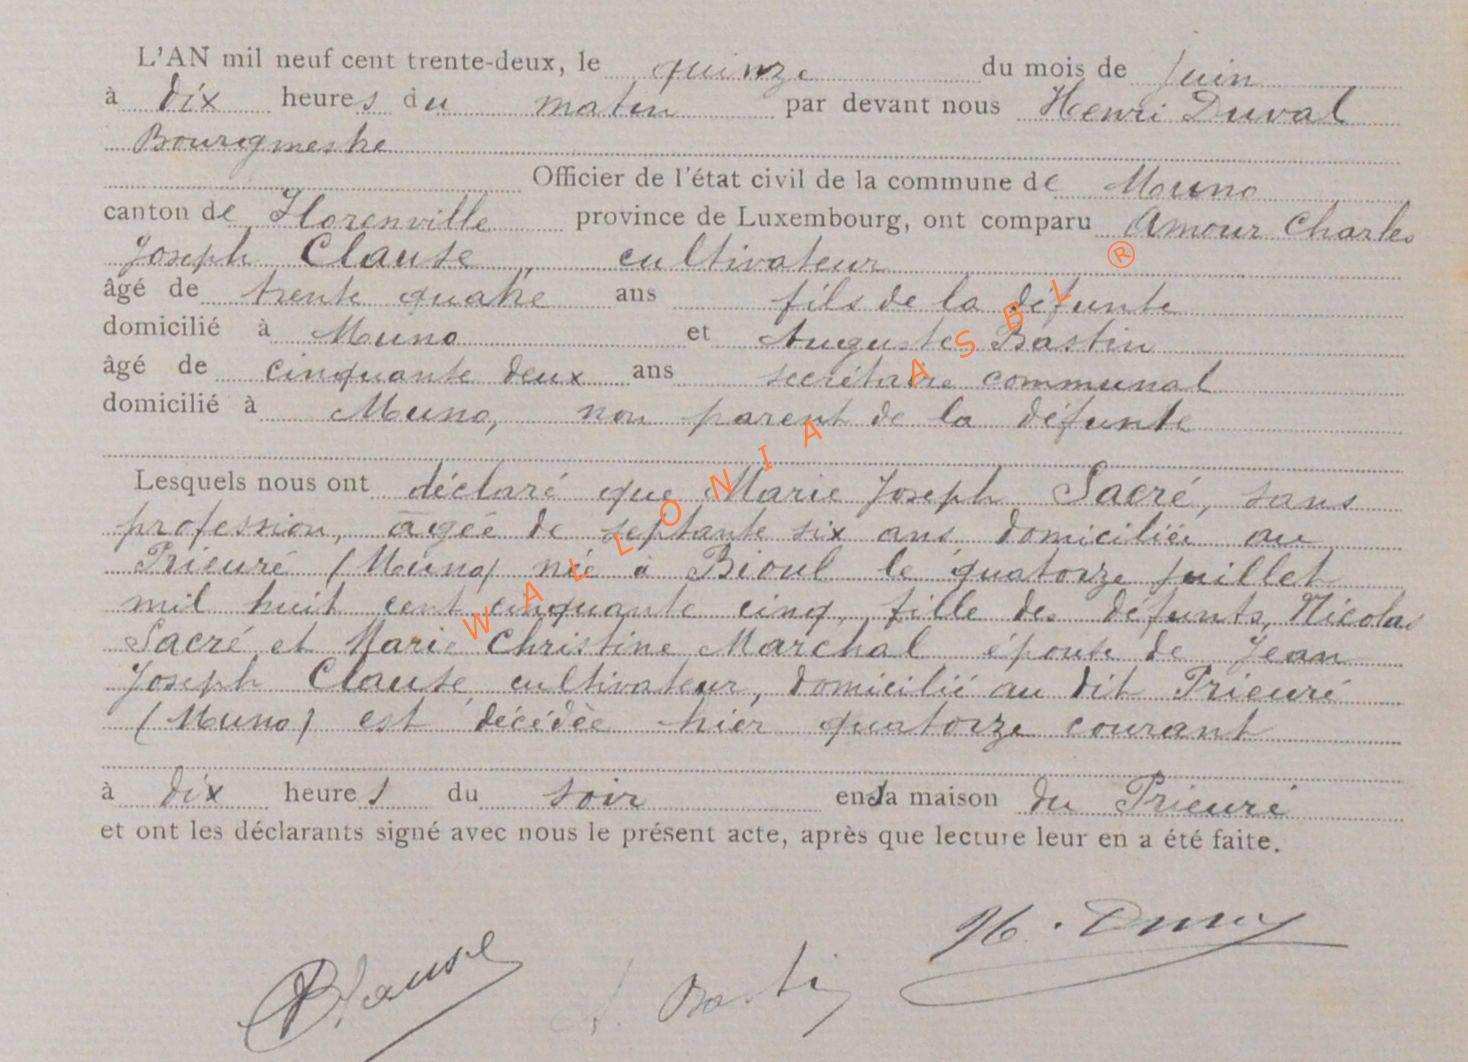 L'AN mil neuf cent trente-deux, le quinze du mois de juin
à dix heures du matin par devant nous Henri Duval
Bourgmestre
Officier de l'état civil de la commune de Muno
canton de Florenville province de Luxembourg, ont comparu Amour Charles
Joseph Clause, cultivateur
âgé de trente quatre ans fils de la défunte
domicilié à Muno et Auguste Bastin
âgé de cinquante deux ans secrétaire communal
domicilié à Muno, non parent de la défunte
Lesquels nous ont déclaré que Marie Joseph Sacré, sans
profession, âgée de septante six ans domiciliée au
Prieuré (Muno) née à Bioul le quatorze juillet
mil huit cent cinquante cinq, fille des défunts, Nicolas
Sacré et Marie Christine Marchal épouse de Jean
Joseph Clause, cultivateur, domicilié au dit Prieuré
(Muno) est décédée hier quatorze courant
à dix heures du soir en sa maison du Prieuré
et ont les déclarants signé avec nous le présent acte, après que lecture leur en a été faite.
Clause A. Bastin H. Duval
WALLONIA ASBL ®